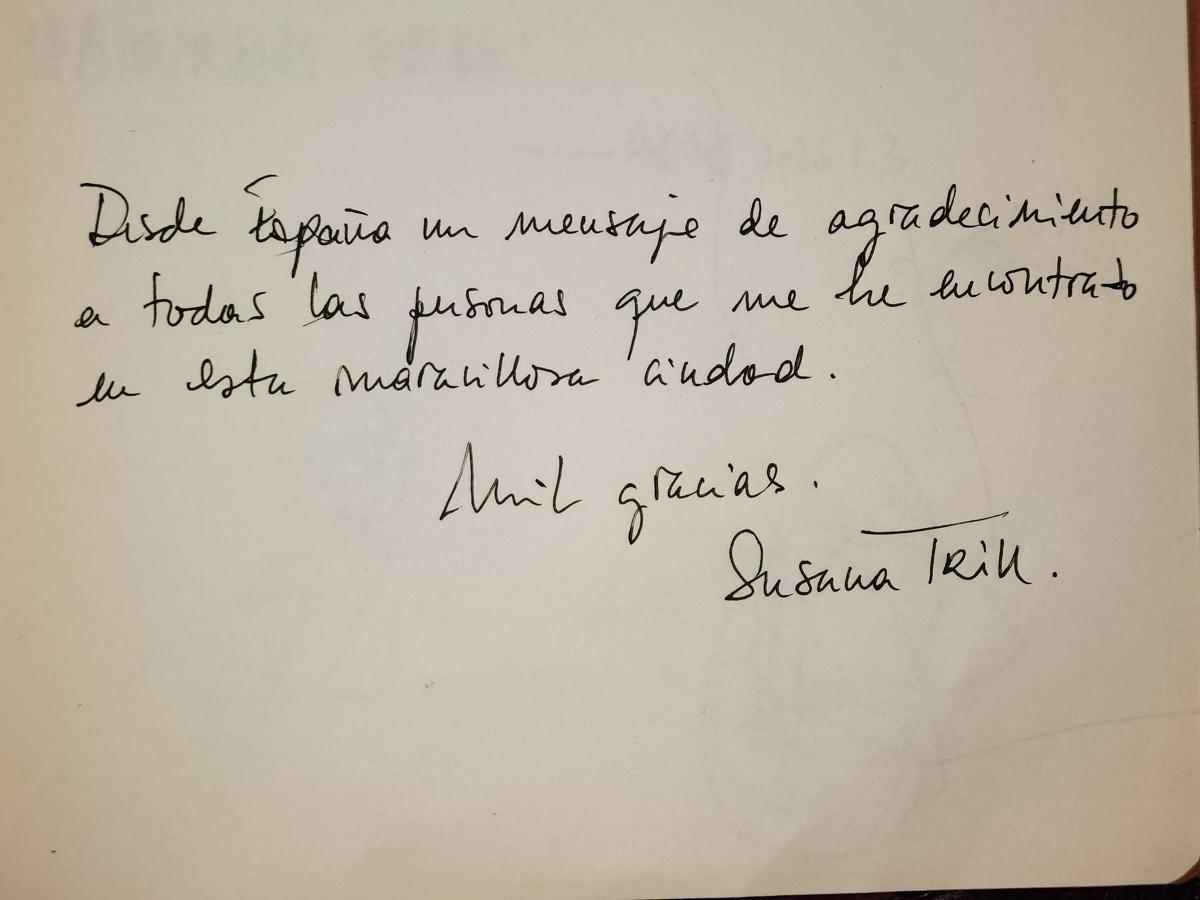 Desde España un mensaje de agradecimiento
a todas las personas que me he encontrato
en esta maravillosa ciudad.
Mil gracias.
Susana Trill.